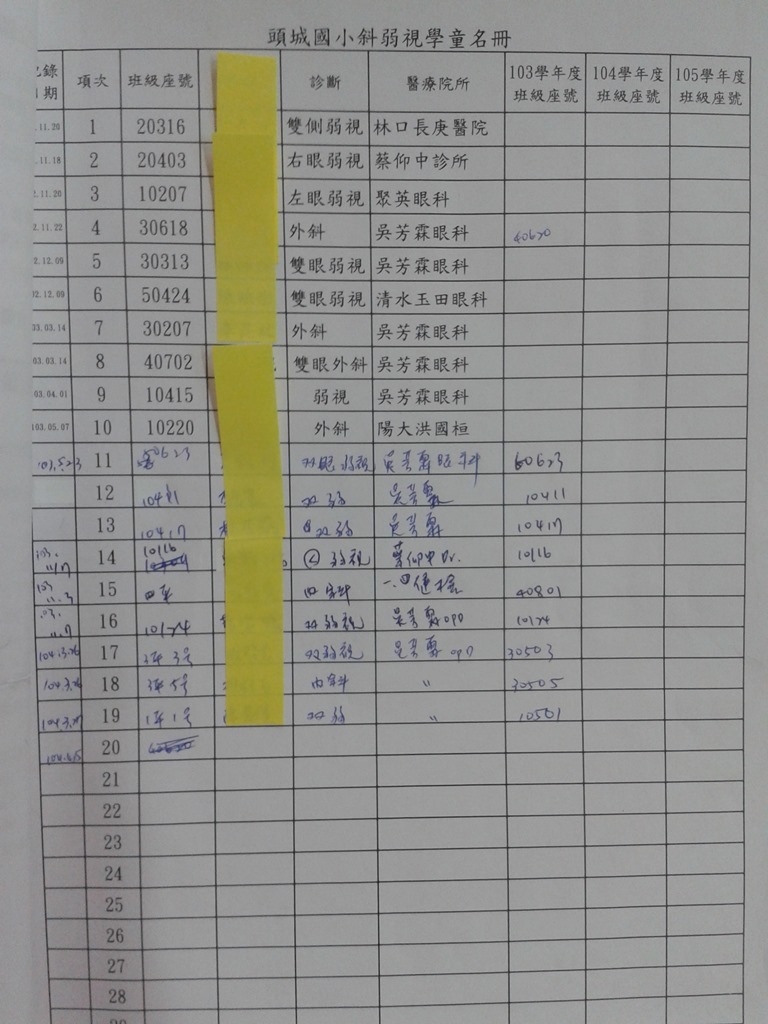 頭城國小斜弱視學童名冊
項次 班級座號 診斷 醫療院所 103學年度班級座號 104學年度班級座號 105學年度班級座號
.11.20 1 20316 雙側弱視 林口長庚醫院
.11.18 2 20403 右眼弱視 蔡仰中診所
2.11.20 3 10207 左眼弱視 聚英眼科
2.11.22 4 30618 外斜 吳芳霖眼科 40620
2.12.09 5 30313 雙眼弱視 吳芳霖眼科
02.12.09 6 50424 雙眼弱視 清水玉田眼科
03.03.14 7 30207 外斜 吳芳霖眼科
03.03.14 8 40702 雙眼外斜 吳芳霖眼科
03.04.01 9 10415 弱視 吳芳霖眼科
103.05.07 10 10220 外斜 陽大洪國桓
11 50623 双眼弱視 吳芳霖眼科 60623
12 10411 双弱 吳芳霖 10411
13 10417 双弱 吳芳霖 10417
14 10116 弱視 蔡仰中Dr. 10116
15 40801
16 10124 双弱視 吳芳霖 10124
104.3.26 17 3年3号 双弱視 吳芳霖 30503
104.3.26 18 3年5号 内斜 〃 30505
104.3.27 19 1年1号 双弱 〃 10501
20
21
22
23
24
25
26
27
28